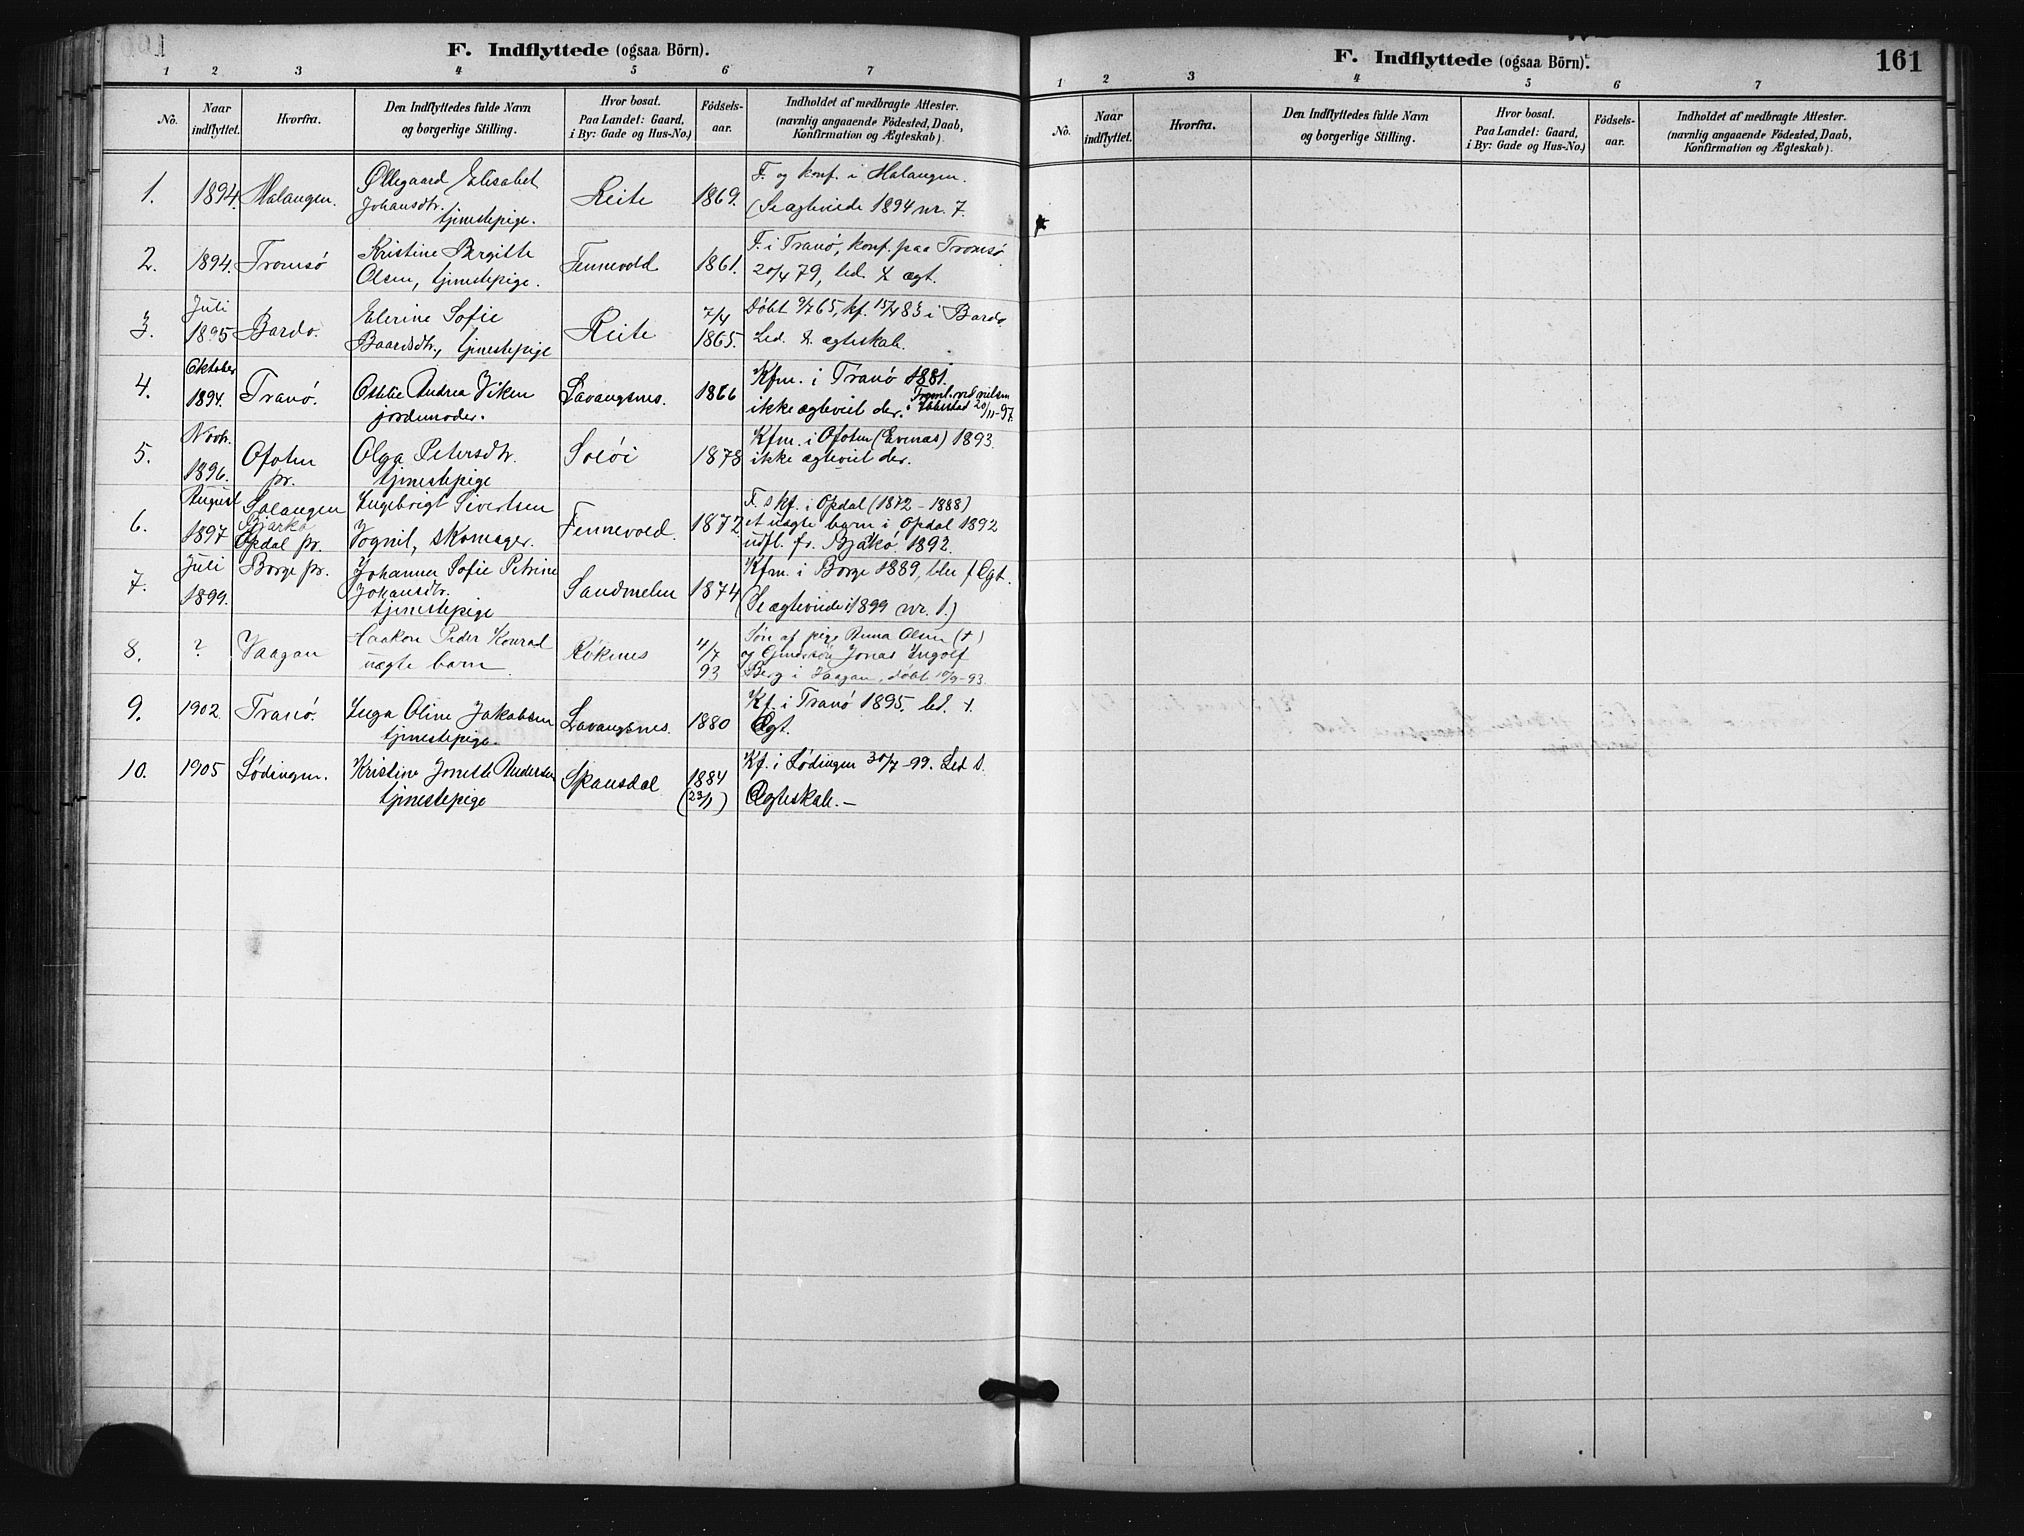 F. Indflyttede (ogsaa Börn).
1 2 3 4 5 6 7
No.
Naar indflyttet.
Hvorfra.
Den Indflyttedes fulde Navn og borgerlige Stilling.
Hvor bosat. Paa Landet: Gaard, i By: Gade og Hus-No.)
Födsels-aar.
Indholdet af medbragte Attester. (navnlig angaaende Födested, Daab, Konfirmation og Ægteskab).
1. 1894. Malangen. Øllegaard Elisabet Reite 1869. F. og konf. i Malangen.
Johansdtr. tjenestepige. (Se ægteviede 1894 nr. 7.
2. 1894. Tromsö Kristine Bergitte Fennevold 1861. F. i Tranö, konf. paa Tromsö
Olsen, tjenestepige. 20/4 79, led. t. ægt.
3. Juli 1895 Bardo. Elerine Sofie Reite 7/4 1865. Döbt 9/7 65, kf. 15/7 83 i Bardo
Baardsdtr., tjenestepige Led. t. ægteskab.
4. Oktober 1894. Tranö. Andrea Viken Lavangsnes. 1866 Kfm. i Tranö 1881.
jordemoder. ikke ægteviet der. 20/11-97.
5. Novbr. 1896. Ofoten pr. Olga Petersdtr. Soløi 1878 Kfm. i Ofoten (Evenæs) 1893
tjenestepige ikke ægteviet der.
6. August 1897 Salangen Ingebrigt Sivertsen Fennevold. 1872. F. & kf. i Opdal (1872 - 1888)
Bjarkö Vognil, skomager. et uægte barn i Opdal 1892
Opdal pr. udfl. fr. Bjarkö 1892.
7. Juli 1899. Borge pr. Johanna Sofie Petrine Sandmelen 1874 Kfm. i Borge 1889, Ægt.
Johansdtr. tjenestepige (Se ægteviede i 1899 nr. 1.)
8. ? Vaagan Haakon Peder Konrad Rökenes 11/7 93 Sön af pige Anna Olsen (+)
uægte barn og Jonas Ingolf
Berg i Vaagan, döbt 10/9-93.
9. 1902. Tranö. Inga Oline Jakobsen Lavangsnes. 1880 Kf. i Tranö 1895. led. t.
tjenestepige. Ægt.
10. 1905 Lödingen. Kristine Jonette Andersen Spansdal 1884 (23/1) Kf. i Lödingen 30/7-99. Led t.
tjenestepige Ægteskab.—
F. Indflyttede (ogsaa Börn).
161
1 2 3 4 5 6 7
No.
Naar indflyttet.
Hvorfra.
Den Indflyttedes fulde Navn og borgerlige Stilling.
Hvor bosat. Paa Landet: Gaard, i By: Gade og Hus-No.)
Födsels-aar.
Indholdet af medbragte Attester. (navnlig angaaende Födested, Daab, Konfirmation og Ægteskab).